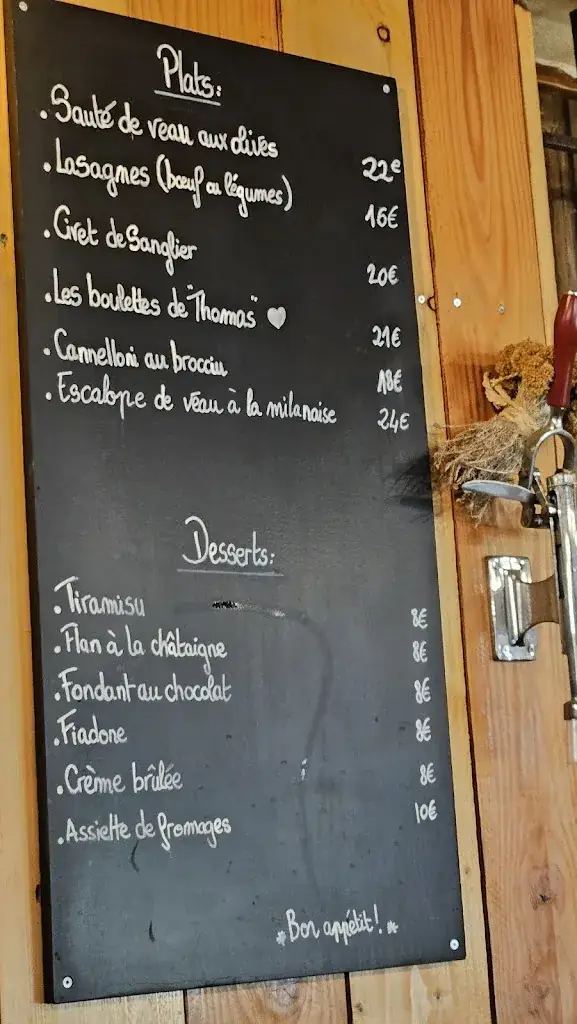 Plats:
.Sauté de veau aux olives 22€
.Lasagnes (bœuf ou légumes) 16€
.Civet de Sanglier 20€
.Les boulettes de "Thomas" ♥ 21€
.Cannelloni au brocciu 18€
.Escalope de veau à la milanaise 24€
Desserts:
.Tiramisu 8€
.Flan à la châtaigne 8€
.Fondant au chocolat 8€
.Fiadone 8€
.Crème brûlée 8€
.Assiette de fromages 10€
*Bon appétit!*